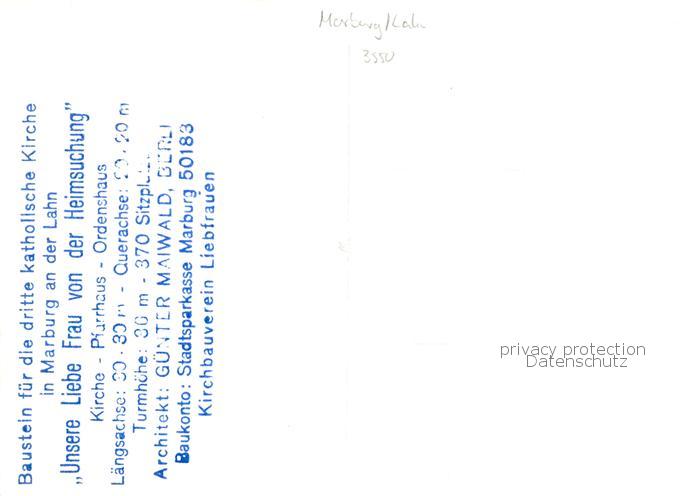 Marburg/Lahn
3550
Baustein für die dritte katholische Kirche
in Marburg an der Lahn
„Unsere Liebe Frau von der Heimsuchung”
Kirche - Pfarrhaus - Ordenshaus
Längsachse: 30.30 m - Querachse: 20 m
Turmhöhe: 30 m - 370 Sitzplätze
Architekt: GÜNTER MAIWALD, BERLI
Baukonto: Stadtsparkasse Marburg 50183
Kirchbauverein Liebfrauen
privacy protection
Datenschutz